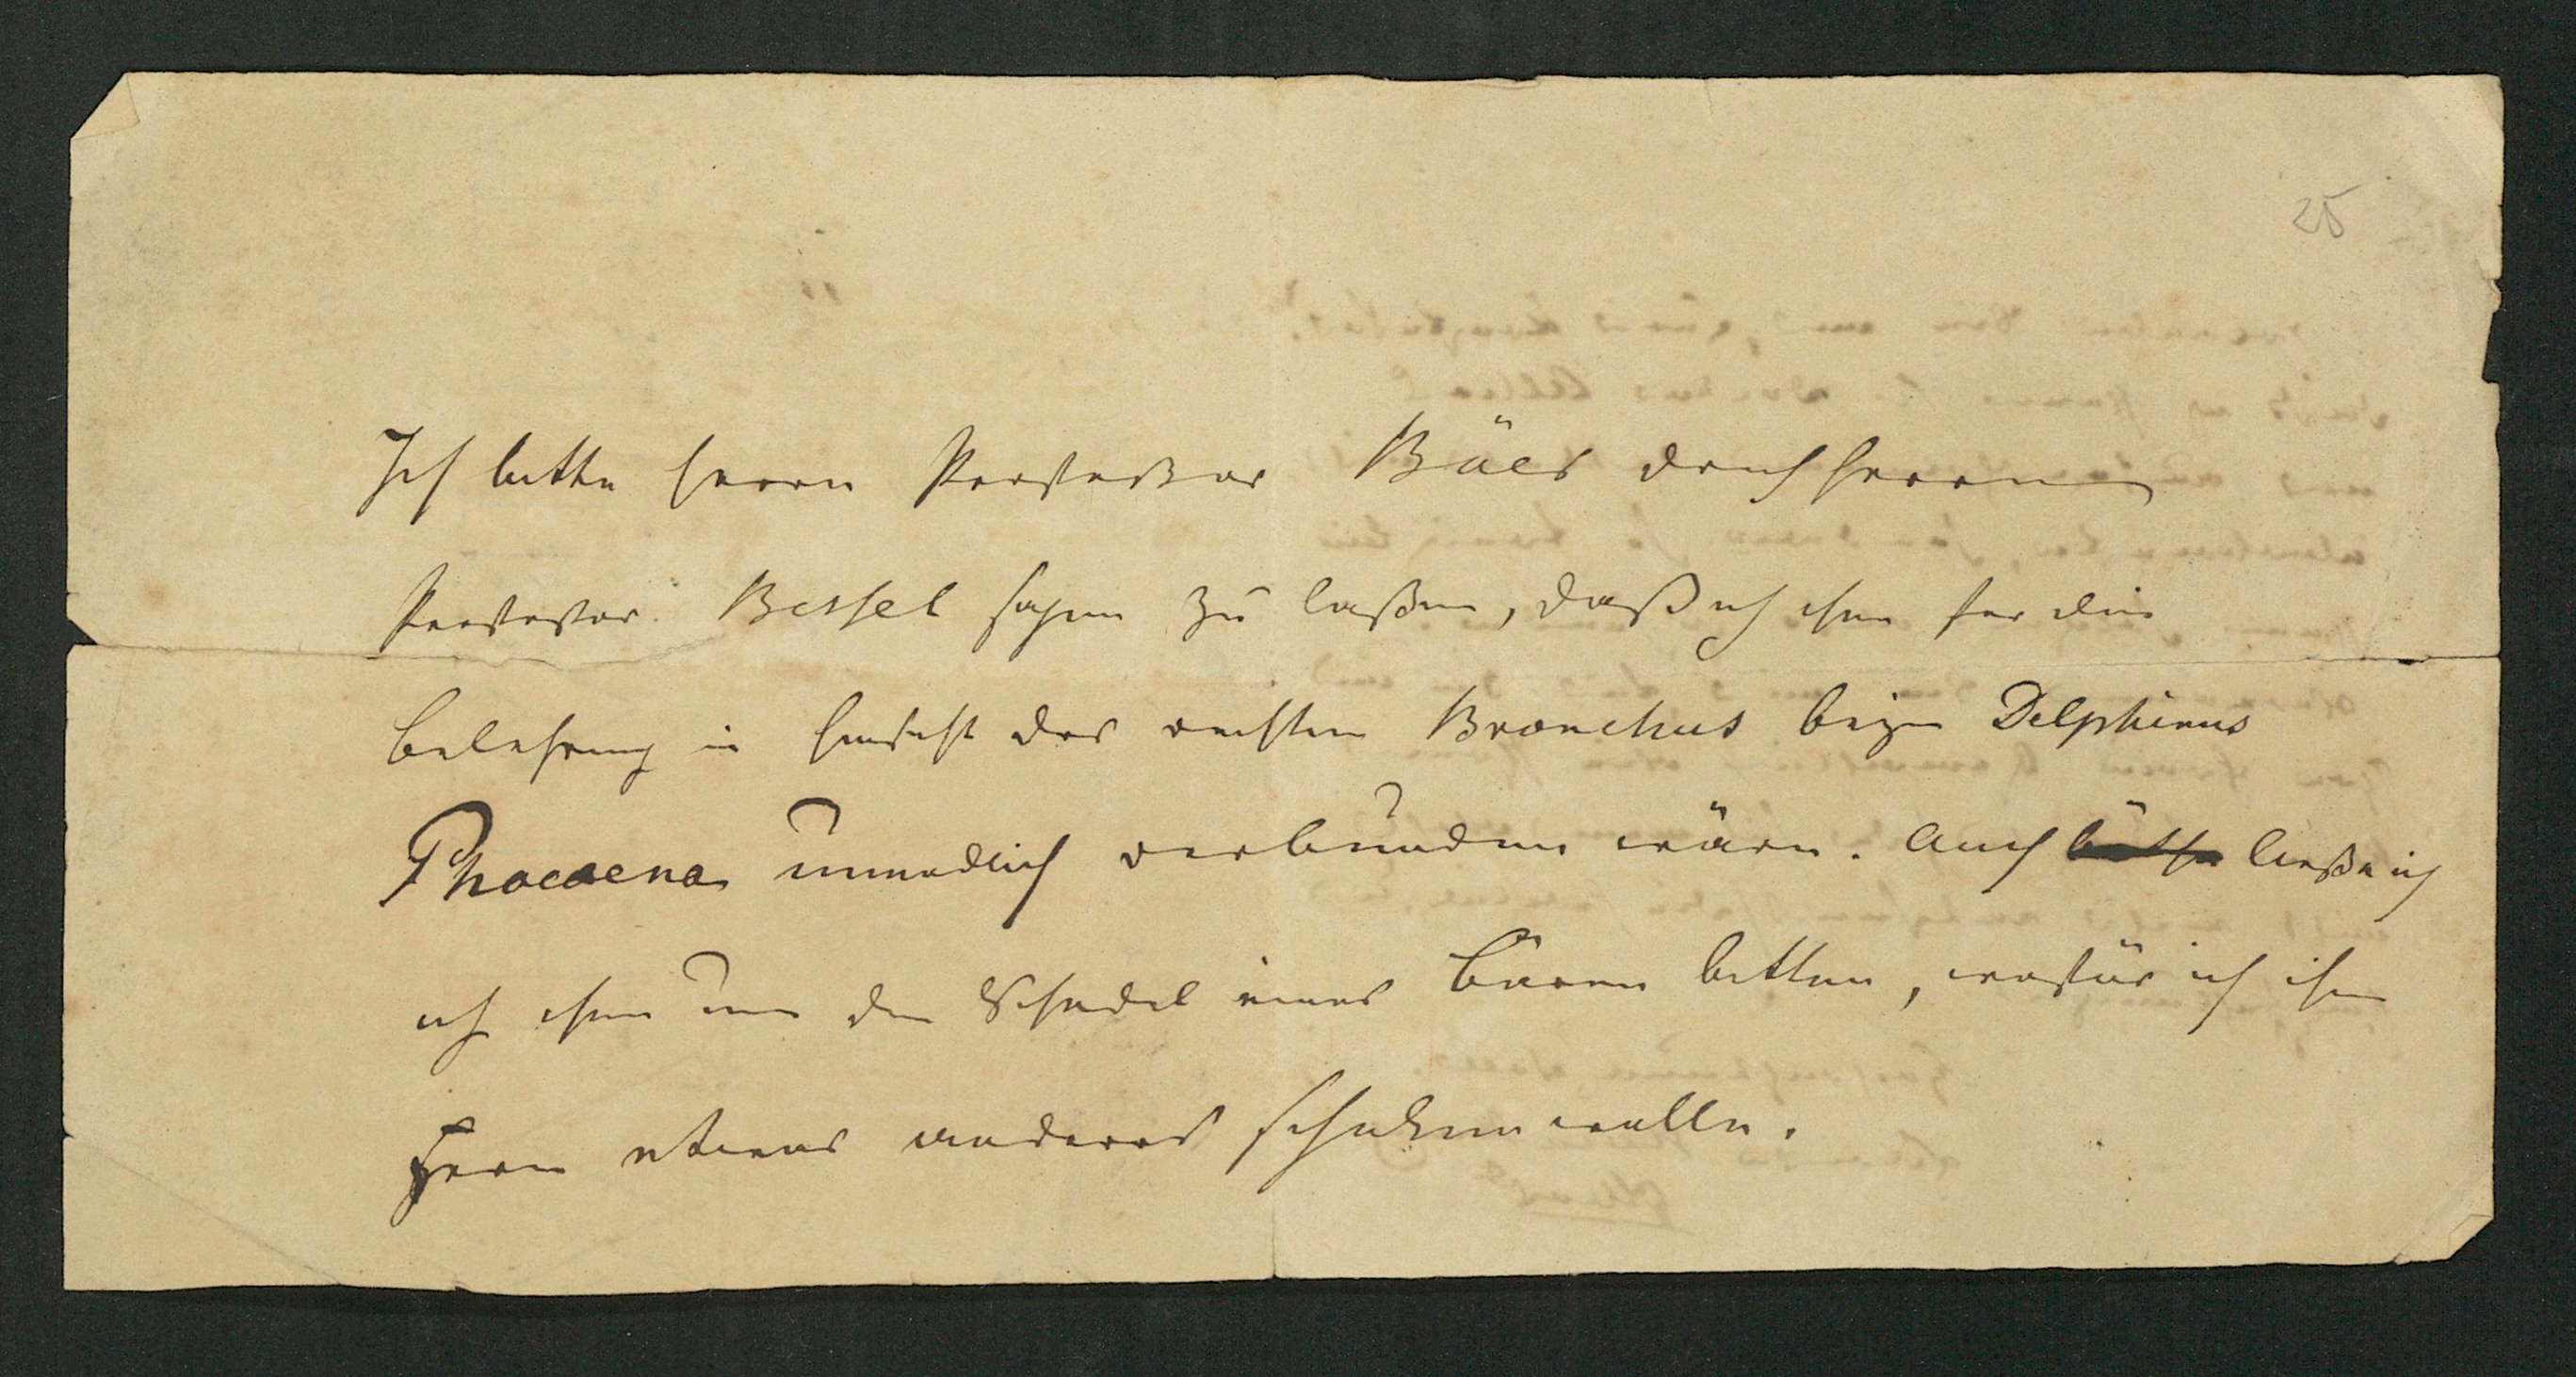 25
Ich bitte Herrn Professor Bäer durch Herrn
Professor Bessel sagen zu laßen, daß ich ihm für die
Belehrung in Hinsicht des rechten Bronchus beym Delphinus
Phocaena unendlich verbunden wäre. Auch ließe ich
ich ihn um den Schedel eines Bären bitten, wofür ich ihm
gern etwas anderes schicken wolle.